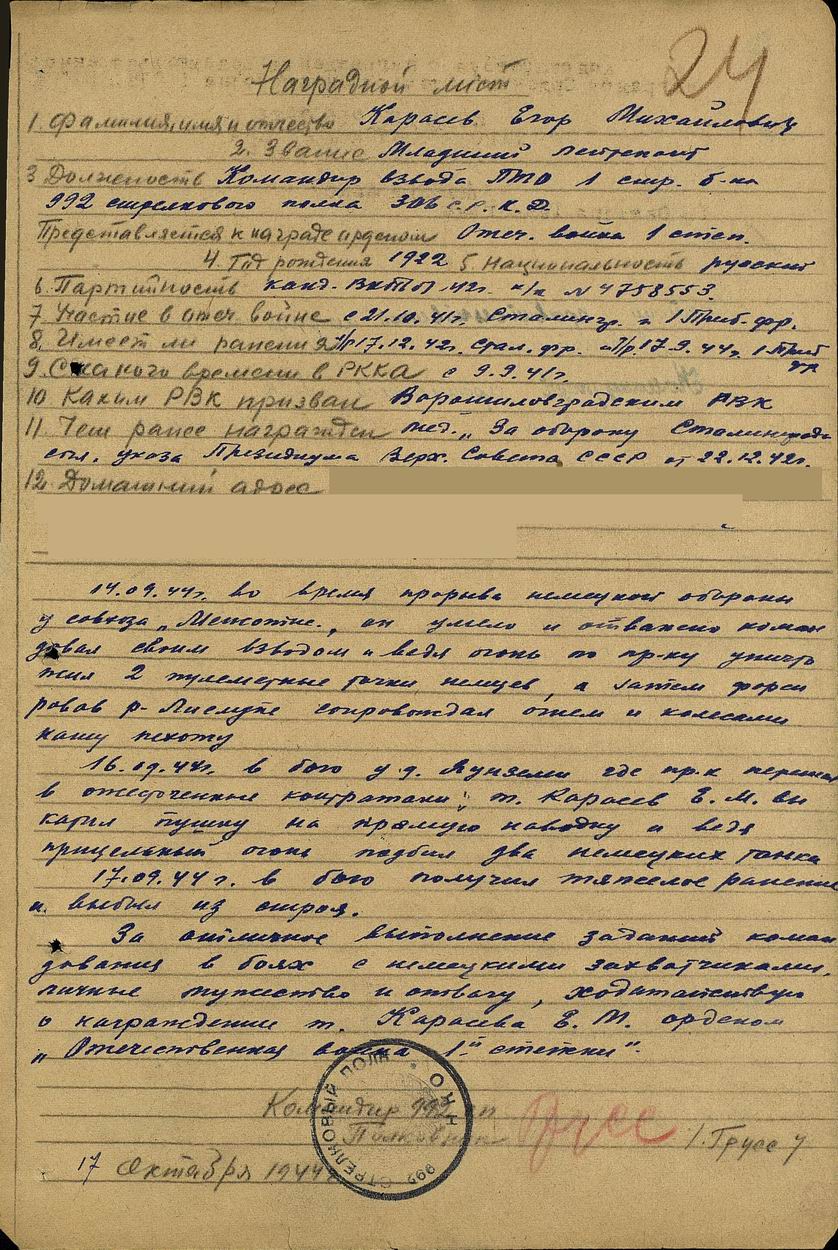 24
Наградной лист
1. Фамилия, имя и отчество Карасев Егор Михайлович
2. Звание Младший лейтенант
3 Должность Командир взвода ПТО 1 стр. б-на
992 стрелкового полка 306 с.р.к.д.
Представляется к награде орденом Отеч. война 1 степ.
4. Год рождения 1922 5. Национальность русский
6. Партийность канд. ВКП(б) 42г. к/к № 4758553.
7. Участие в отеч. войне с 21.10.41г. Сталингр. и 1 Приб. фр.
8. Имеет ли ранения т/р 17.12.42г. Стал. фр. т/р. 17.9.44г. 1 Приб
фр
9. С какого времени в РККА с 9.9.41г.
10 Каким РВК призван Ворошиловградским РВК
11. Чем ранее награжден мед. „За оборону Сталинграда
огл. указа Президиума Верх. Совета СССР от 22.12.42г.
12. Домашний адрес
14.09.44г. во время прорыва немецкой обороны
у совхоза „Межотне", он умело и отважно коман
довал своим взводом и ведя огонь по пр-ку уничто
жил 2 пулеметные точки немцев, а затем форси
ровав р-Лиелупе сопровождал огнем и колесами
нашу пехоту
16.09.44г. в бою у д. где пр-к перешел
в ожесточенные контратаки; т. Карасев Е. М. вы
катил пушку на прямую наводку и ведя
прицельный огонь подбил два немецких танка
17.09.44г. в бою получил тяжелое ранение
и выбыл из строя.
За отличное выполнение заданий коман
дования в боях с немецкими захватчиками,
личные мужество и отвагу, ходатайствую
о награждение т. Карасева Е. М. орденом
„Отечественная война 1й степени".
Командир 992 сп
Полковник /Трусс/
17 Октября 1944г
СТРЕЛКОВЫЙ ПОЛК
992